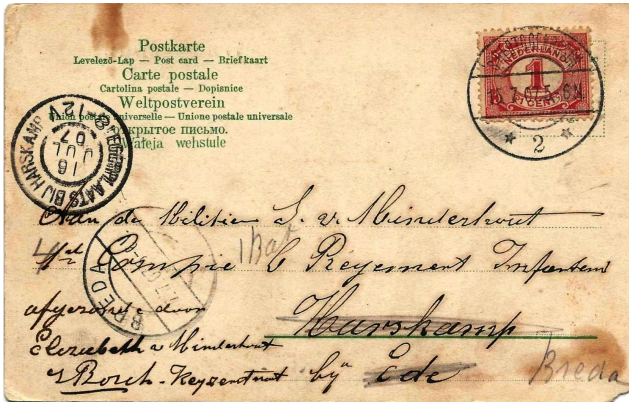 Postkarte
Levelező-Lap — Post card — Briefkaart
Carte postale
Cartolina postale — Dopisnice
Weltpostverein
Union postale universelle — Unione postale universale
ОТКРЫТОЕ ПИСЬМО.
wehstule
NEDERLAND
1
CENT
2
LEGERPLAATS BIJ HARSKAMP
8-12V
16
JUL
07
BREDA
Aan de Militien S. v. Minderhout
1 Bat
Compie 6 Regement Infantem
afgezonde door
Harskamp
Elizabeth v Minderhout
s Bosch - Keyzerstraat by Ede
Breda